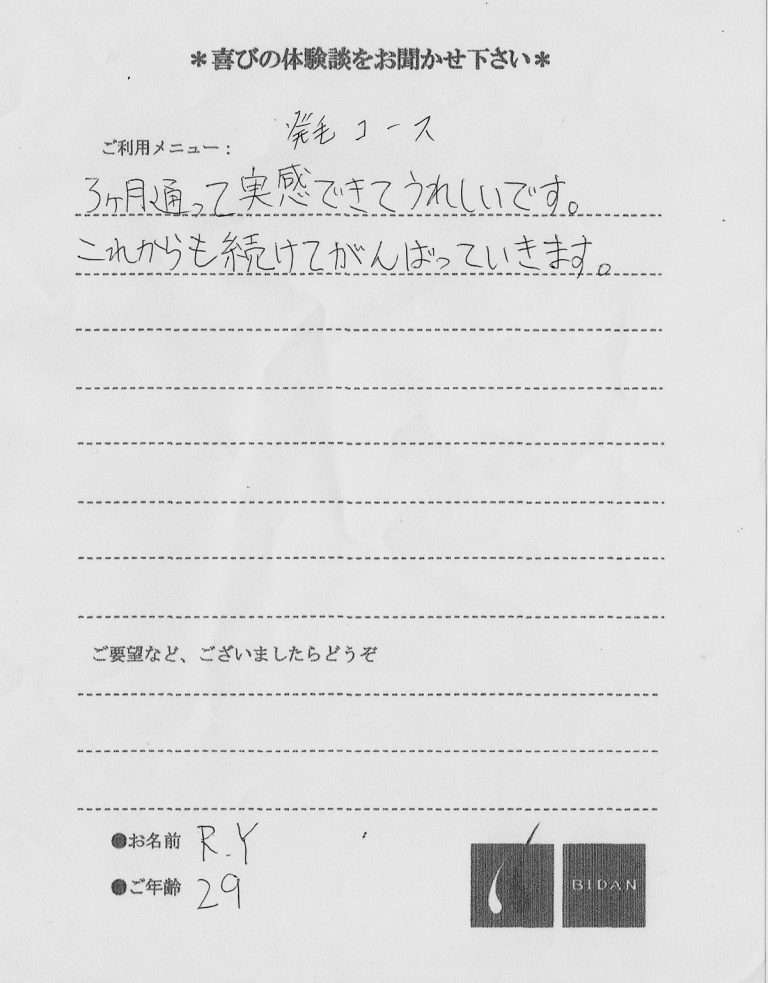 ＊喜びの体験談をお聞かせ下さい＊
ご利用メニュー： 発毛コース
3ヶ月通って実感できてうれしいです。
これからも続けてがんばっていきます。
ご要望など、ございましたらどうぞ
●お名前 R.Y
●ご年齢 29
BIDAN